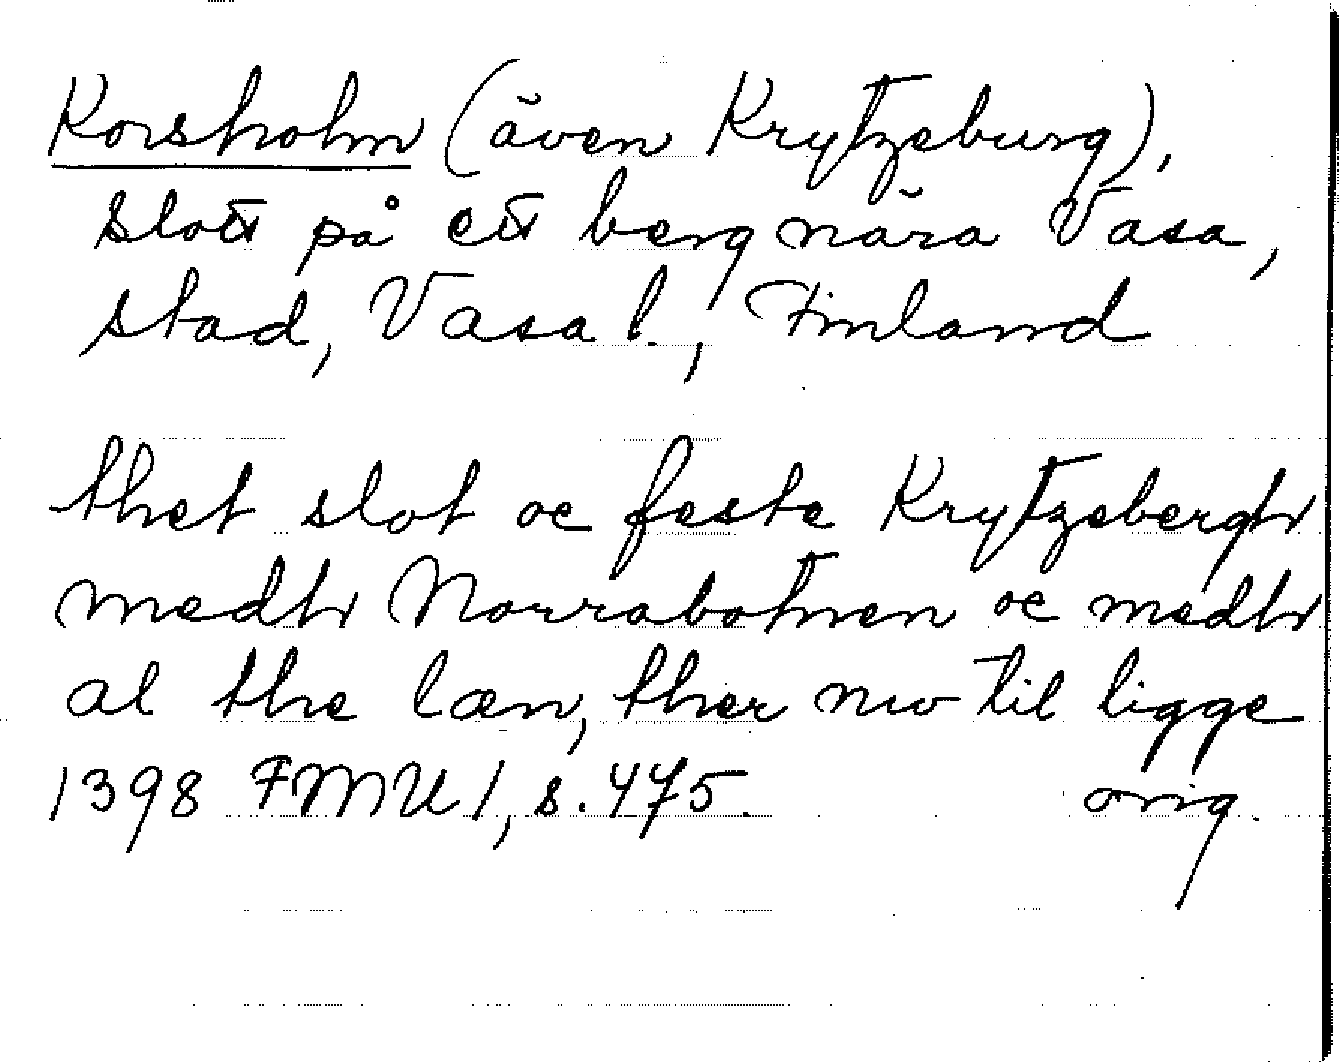 Korsholm (även Krytzeburg),
slott på ett berg nära Vasa,
stad, Vasa l., Finland
thet slot oc feste Krytzebergh
medh Norrabotnen oc medh
al the læn, ther nw til ligge
1398 FMU 1, s. 475. orig.